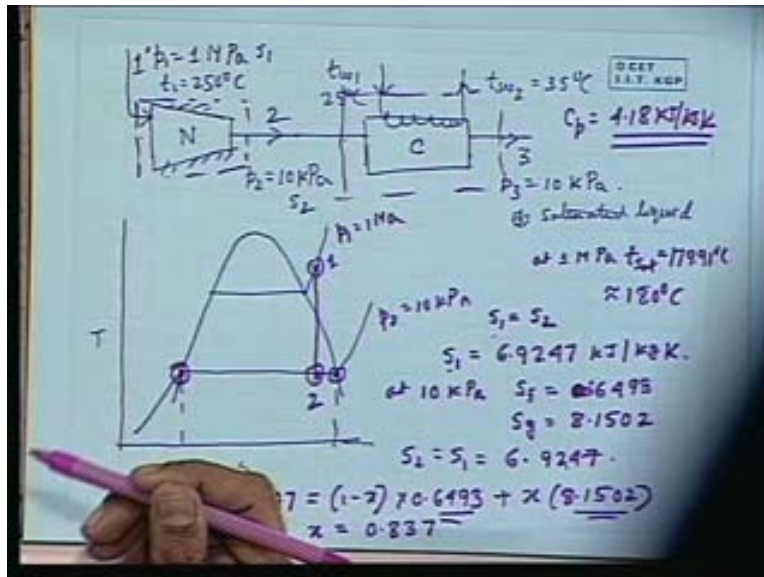 1 p₁ = 1 MPa s₁
t₁ = 250°C
N
2
p₂ = 10 kPa
s₂
tw₁
25°C
tw₂ = 35°C
C
3
p₃ = 10 kPa.
saturated liquid
C.E.T
I.I.T. KGP
Cp = 4.18 kJ/kgK
at 1 MPa tsat = 179.91°C
≈ 180°C
T
p₁ = 1 MPa
1
p₂ = 10 kPa
2
s₁ = s₂
s₁ = 6.9247 kJ/kgK.
at 10 kPa sf = 0.6493
sg = 8.1502
s₂ = s₁ = 6.9247.
47 = (1-x) × 0.6493 + x (8.1502)
x = 0.837